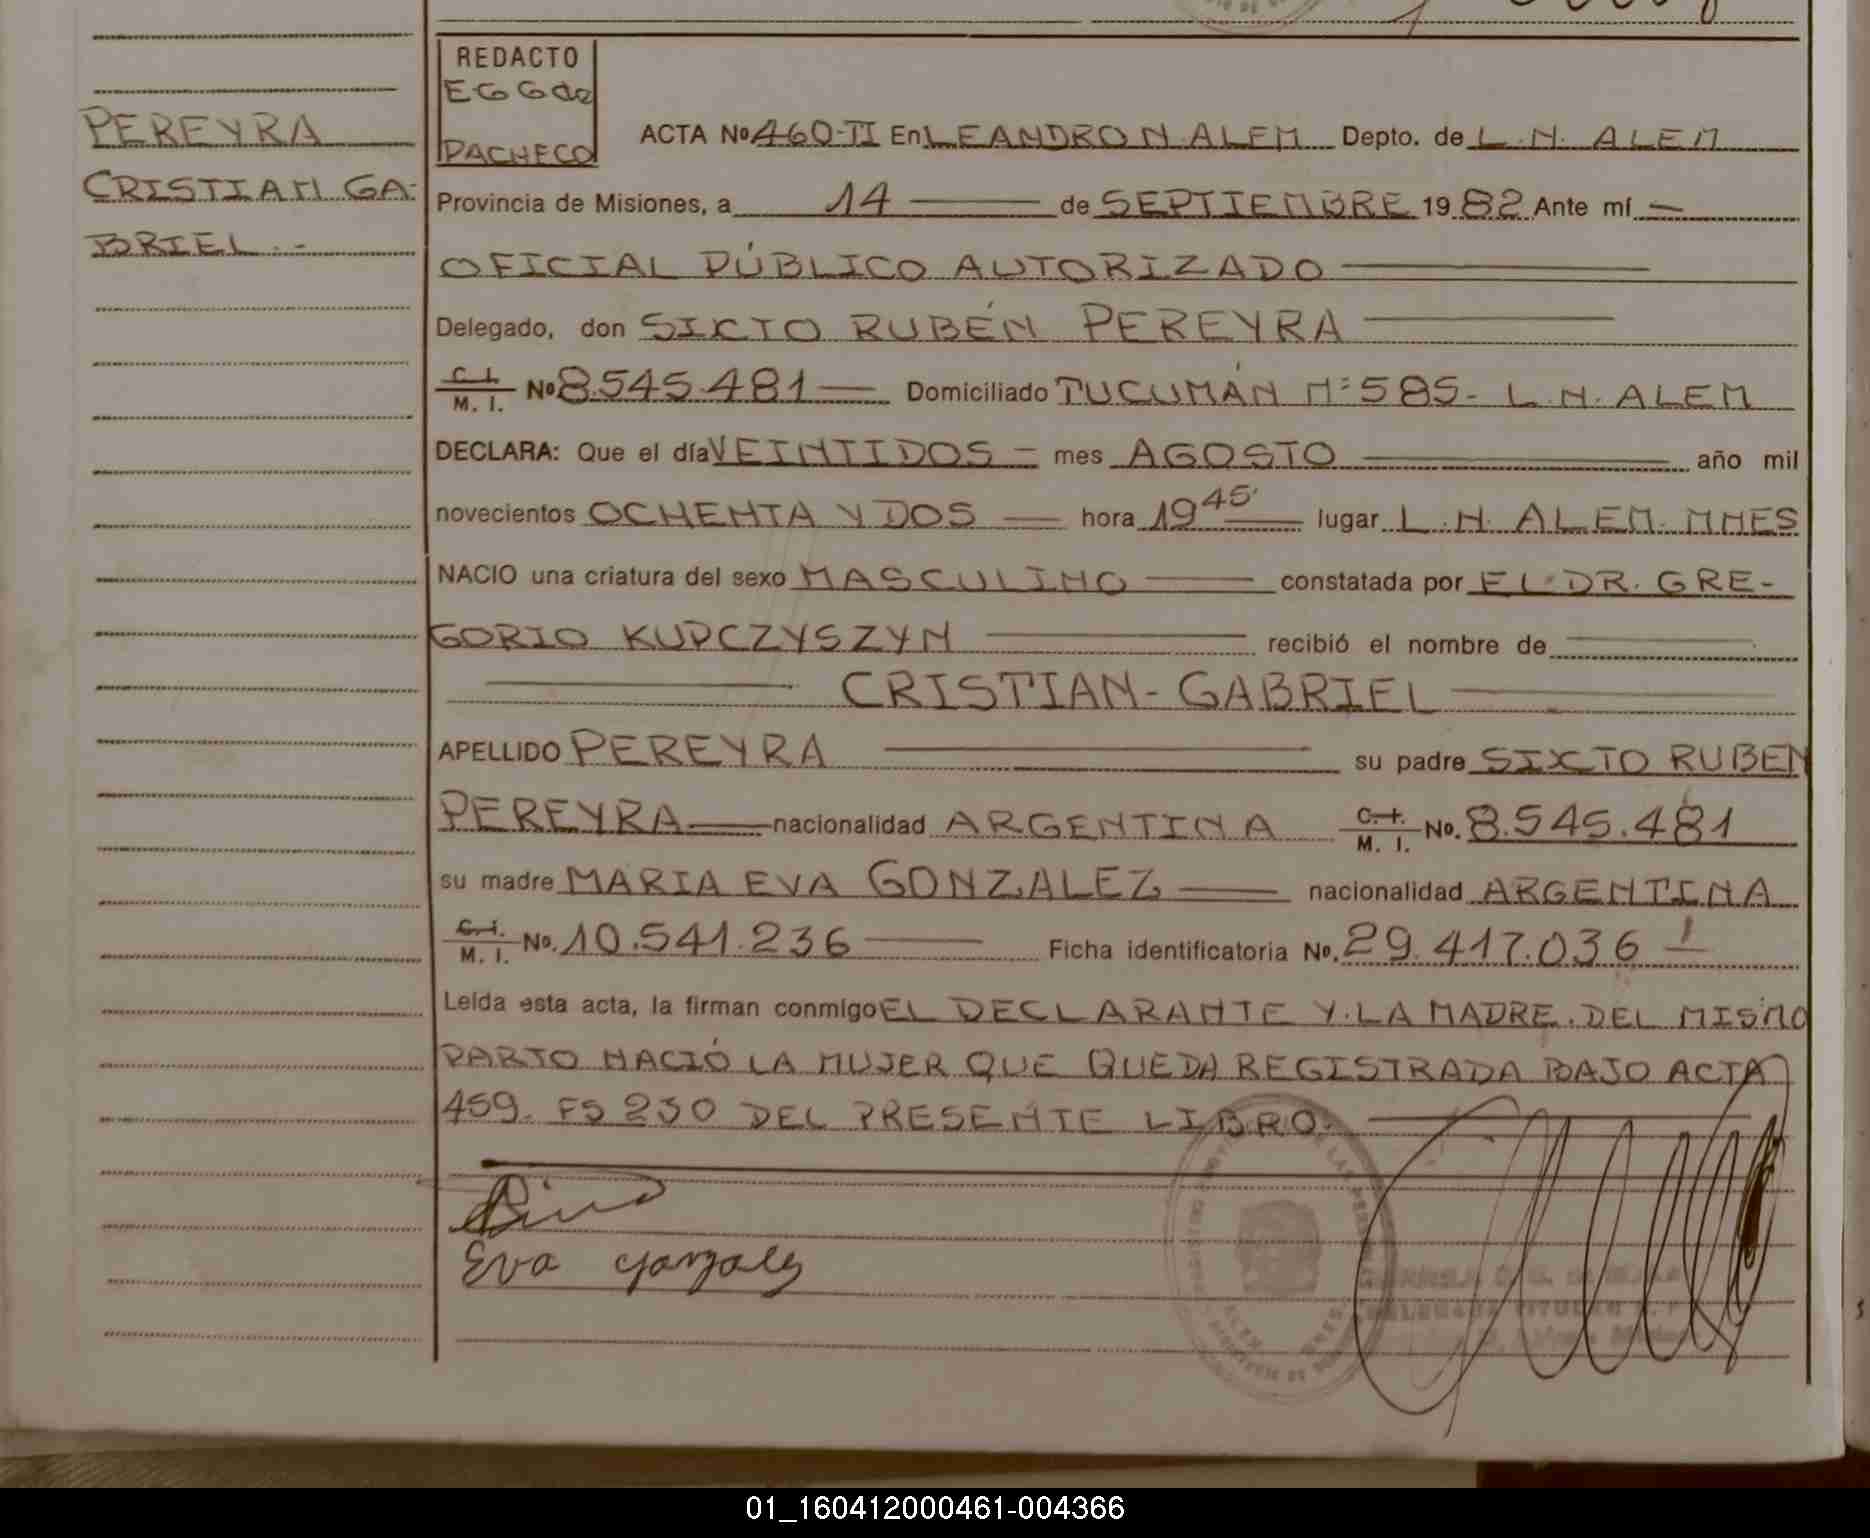 REDACTO
EGG de
PACHECO
PEREYRA
CRISTIAN GA-
BRIEL.-
ACTA Nº 460-II En LEANDRO N. ALEM Depto. de L. N. ALEM
Provincia de Misiones, a 14 — de SEPTIEMBRE 1982 Ante mí —
OFICIAL PÚBLICO AUTORIZADO
Delegado, don SIXTO RUBÉN PEREYRA
C. I. M. I. Nº 8.545.481 — Domiciliado TUCUMÁN Nº 585- L.N. ALEM
DECLARA: Que el día VEINTIDOS — mes AGOSTO — año mil
novecientos OCHENTA Y DOS — hora 19 45' lugar L. N. ALEM. MNES
NACIO una criatura del sexo MASCULINO — constatada por EL DR. GRE-
GORIO KUPCZYSZYN — recibió el nombre de
CRISTIAN-GABRIEL
APELLIDO PEREYRA — su padre SIXTO RUBEN
PEREYRA — nacionalidad ARGENTINA C. I. M. I. No. 8.545.481
su madre MARIA EVA GONZALEZ — nacionalidad ARGENTINA
C. I. M. I. No. 10.541.236 — Ficha identificatoria No. 29.417.036
Leída esta acta, la firman conmigo EL DECLARANTE Y LA MADRE. DEL MISMO
PARTO NACIÓ LA MUJER QUE QUEDA REGISTRADA BAJO ACTA
459. FS 230 DEL PRESENTE LIBRO.
Eva Gonzales
01_160412000461-004366